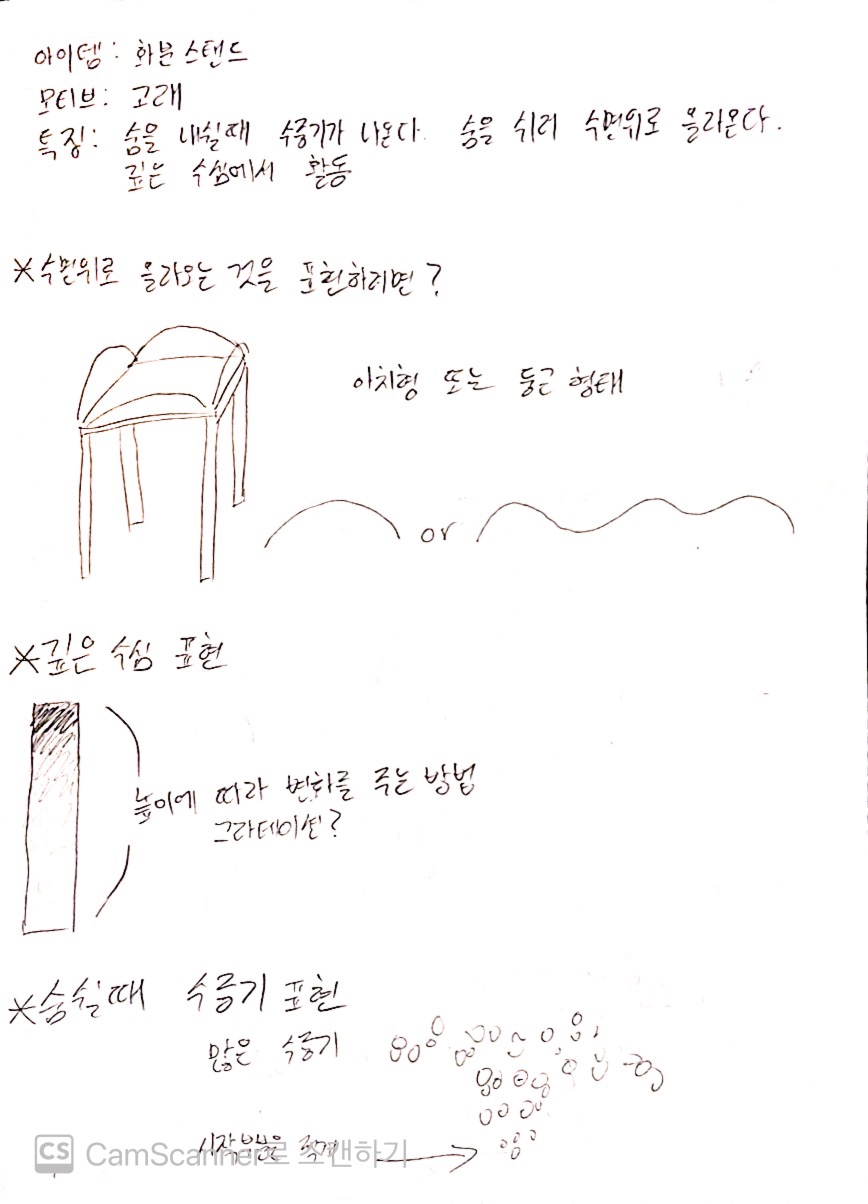 아이템: 화분스탠드
모티브: 고래
특징: 숨을 내쉴때 수증기가 나온다. 숨을 쉬러 수면위로 올라온다.
깊은 수심에서 활동
*수면위로 올라오는 것을 표현하려면?
아치형 또는 둥근 형태
or
*깊은 수심 표현
높이에 따라 변화를 주는 방법
그라데이션?
*숨쉴때 수증기 표현
많은 수증기
시작부분은 작게
CS CamScanner로 스캔하기